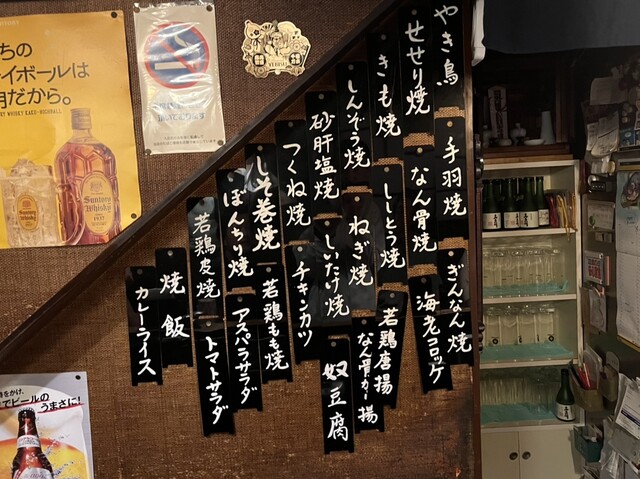 やき鳥
せせり焼
きも焼
しんぞう焼
砂肝塩焼
つくね焼
しそ巻焼
ぼんちり焼
若鶏皮焼
焼飯
カレーライス
手羽焼
なん骨焼
ししとう焼
ねぎ焼
しいたけ焼
チキンカツ
若鶏もも焼
アスパラサラダ
トマトサラダ
ぎんなん焼
海老コロッケ
若鶏唐揚
なん骨から揚
奴豆腐
イボールは
だから。
SUNTORY
Whisky
1937
YEBISU
ビールの
うまさに!